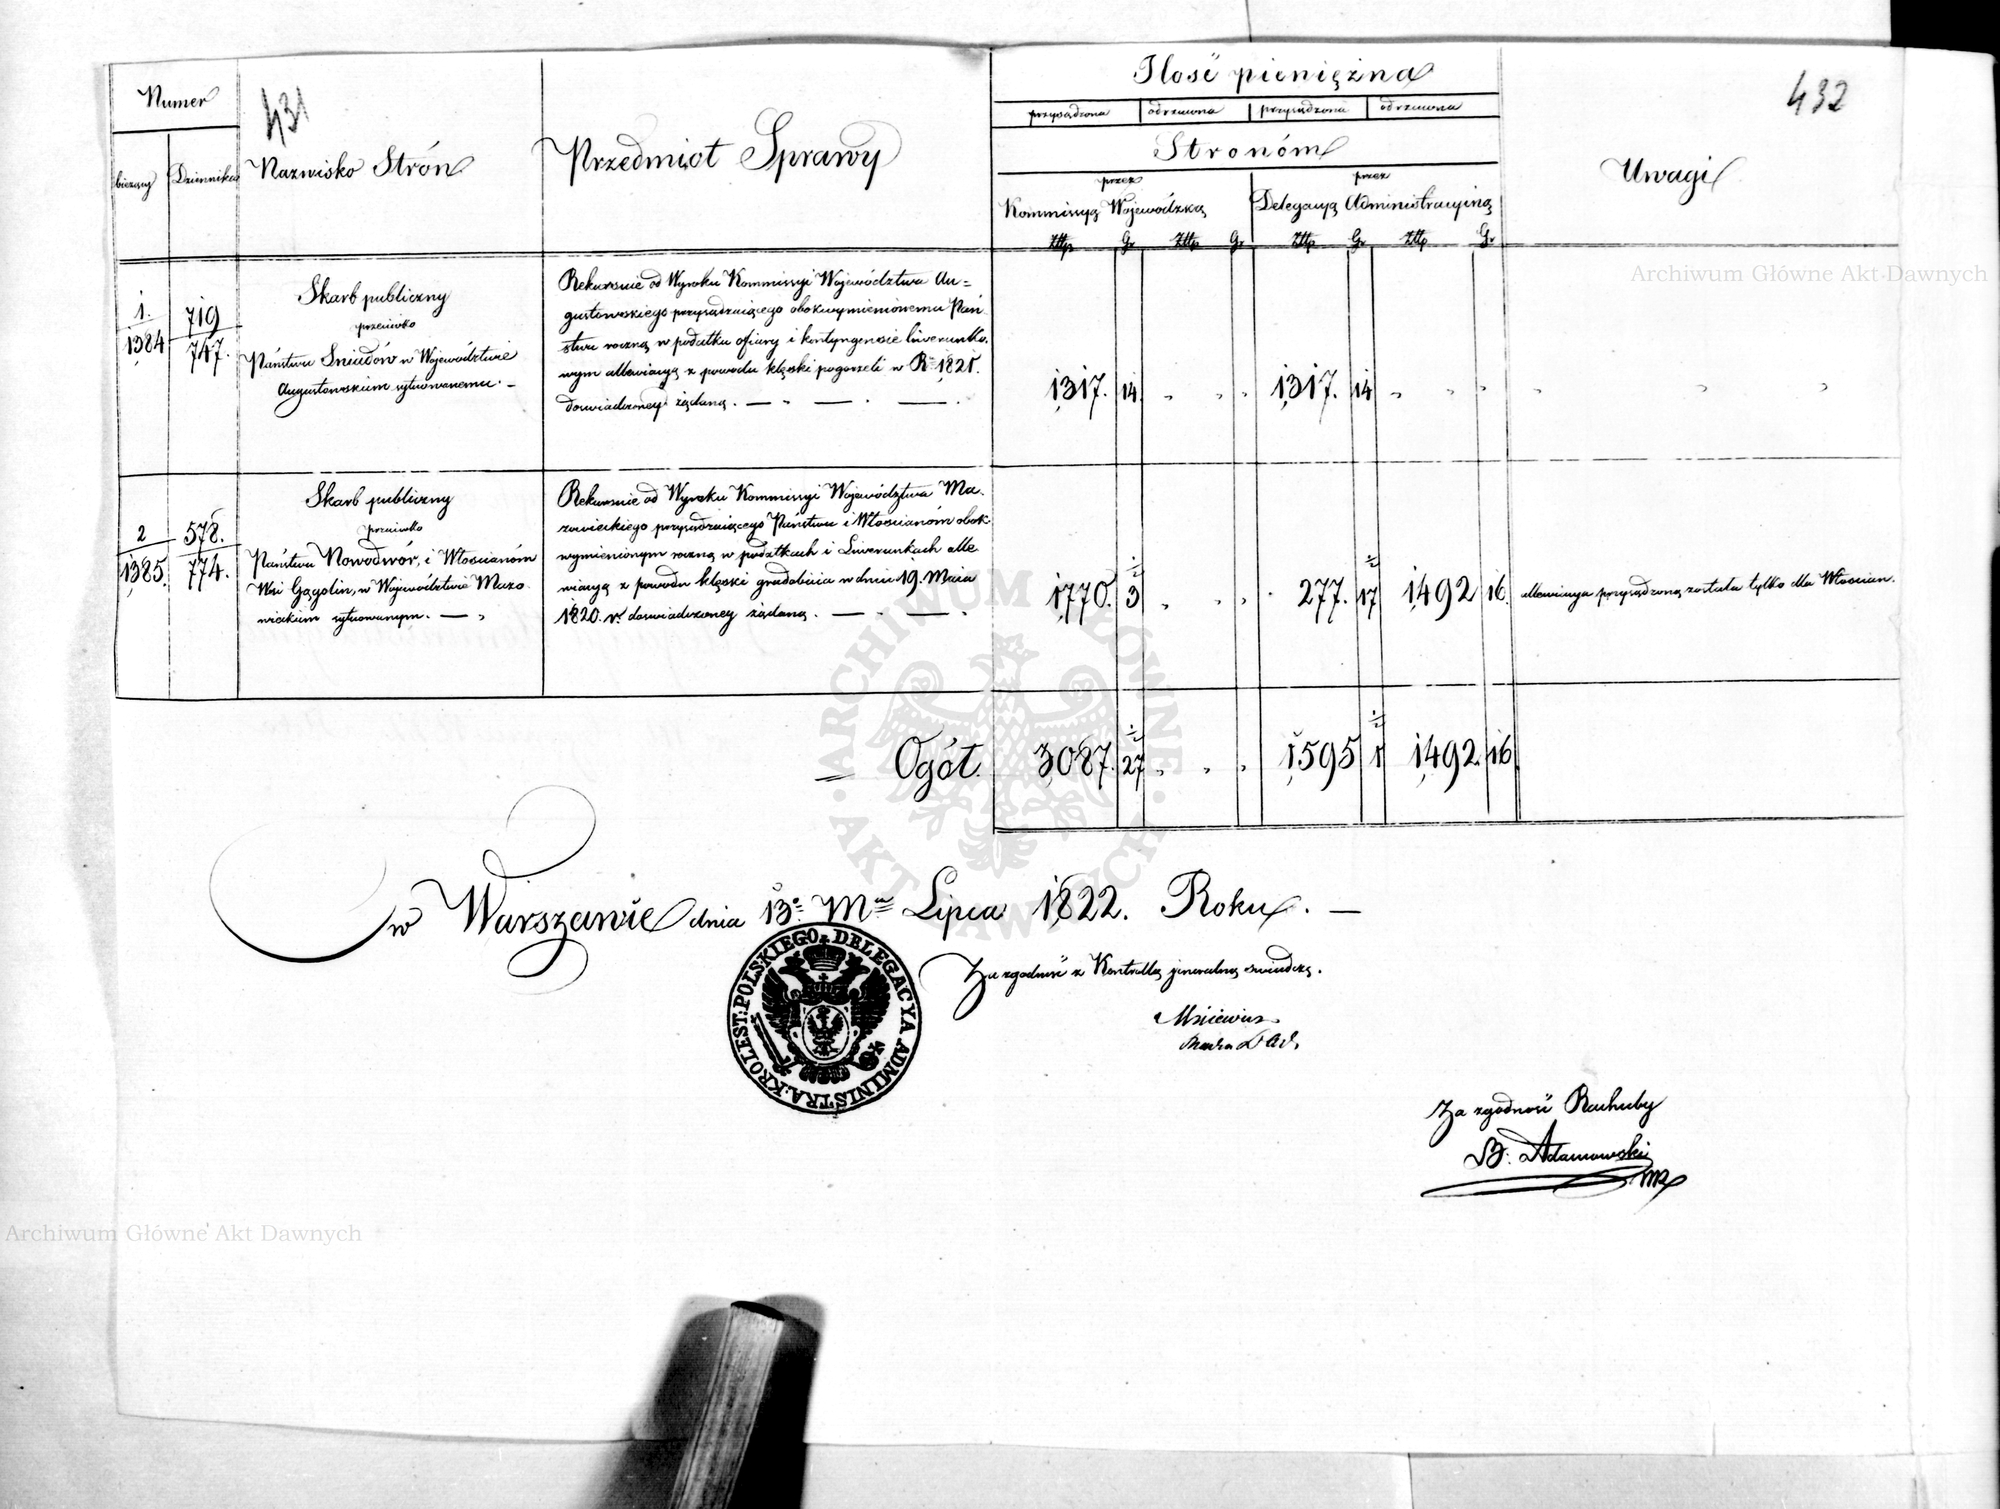 431
432
Numer
bieżący
Dziennika
Nazwisko Strón
Przedmiot Sprawy
Ilość pieniężna
przysądzona
odrzucona
przysądzona
odrzucona
Stronóm
przez
Kommissyą Wojewódzką
przez
Delegacyą Administracyiną
Złtp Gr Złtp Gr Złtp Gr Złtp Gr
Uwagi
1.
1384
719
747.
Skarb publiczny
przeciwko
Państwu Sniadów w Województwie
Augustowskim sytuowanemu. —
Rekursie od Wyroku Kommissyi Województwa Au=
gustowskiego przysądzaiącego obokwymienionemu Pań
stwu roczną w podatku ofiary i kontyngensie liwerunko.
wym allewiacyą z powodu klęski pogorzeli w R. 1821.
doswiadczoney żądaną. —
1317. 14. 1317. 14
2
1385.
578.
774.
Skarb publiczny
przeciwko
Państwu Nowodwór, i Włoscianóm
Wsi Gągolin, w Województwie Mazo
wieckim sytuowanym. —
Rekursie od Wyroku Kommissyi Województwa Ma.
zowieckiego przysądzaiącego Państwu i Włoscianóm obok
wymienionym roczną w podatkach i Liwerunkach alle
wiacyą z powodu klęski gradobicia w dniu 19. Maia
1820. r. doswiadczoney żądaną. —
1770. 3 277. 17 1492 16.
allewiacya przysądzoną została tylko dla Włoscian.
Ogół. 3087. 27 1595 1 1492. 16
w Warszawie dnia 13° Mca Lipca 1822. Roku. —
Za zgodność z Kontrollą jeneralną swiadczą.
Za zgodność Rachuby
Adamowski
KROLEST: POLSKIEGO DELEGACYA ADMINISTRA.
ARCHIWUM GŁÓWNE AKT DAWNYCH
Archiwum Główne Akt Dawnych
Archiwum Główne Akt Dawnych